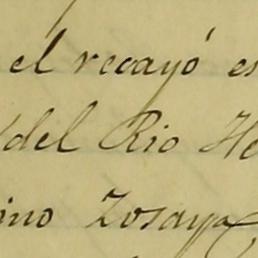 el recayó es
del Rio He
ino Zosaya